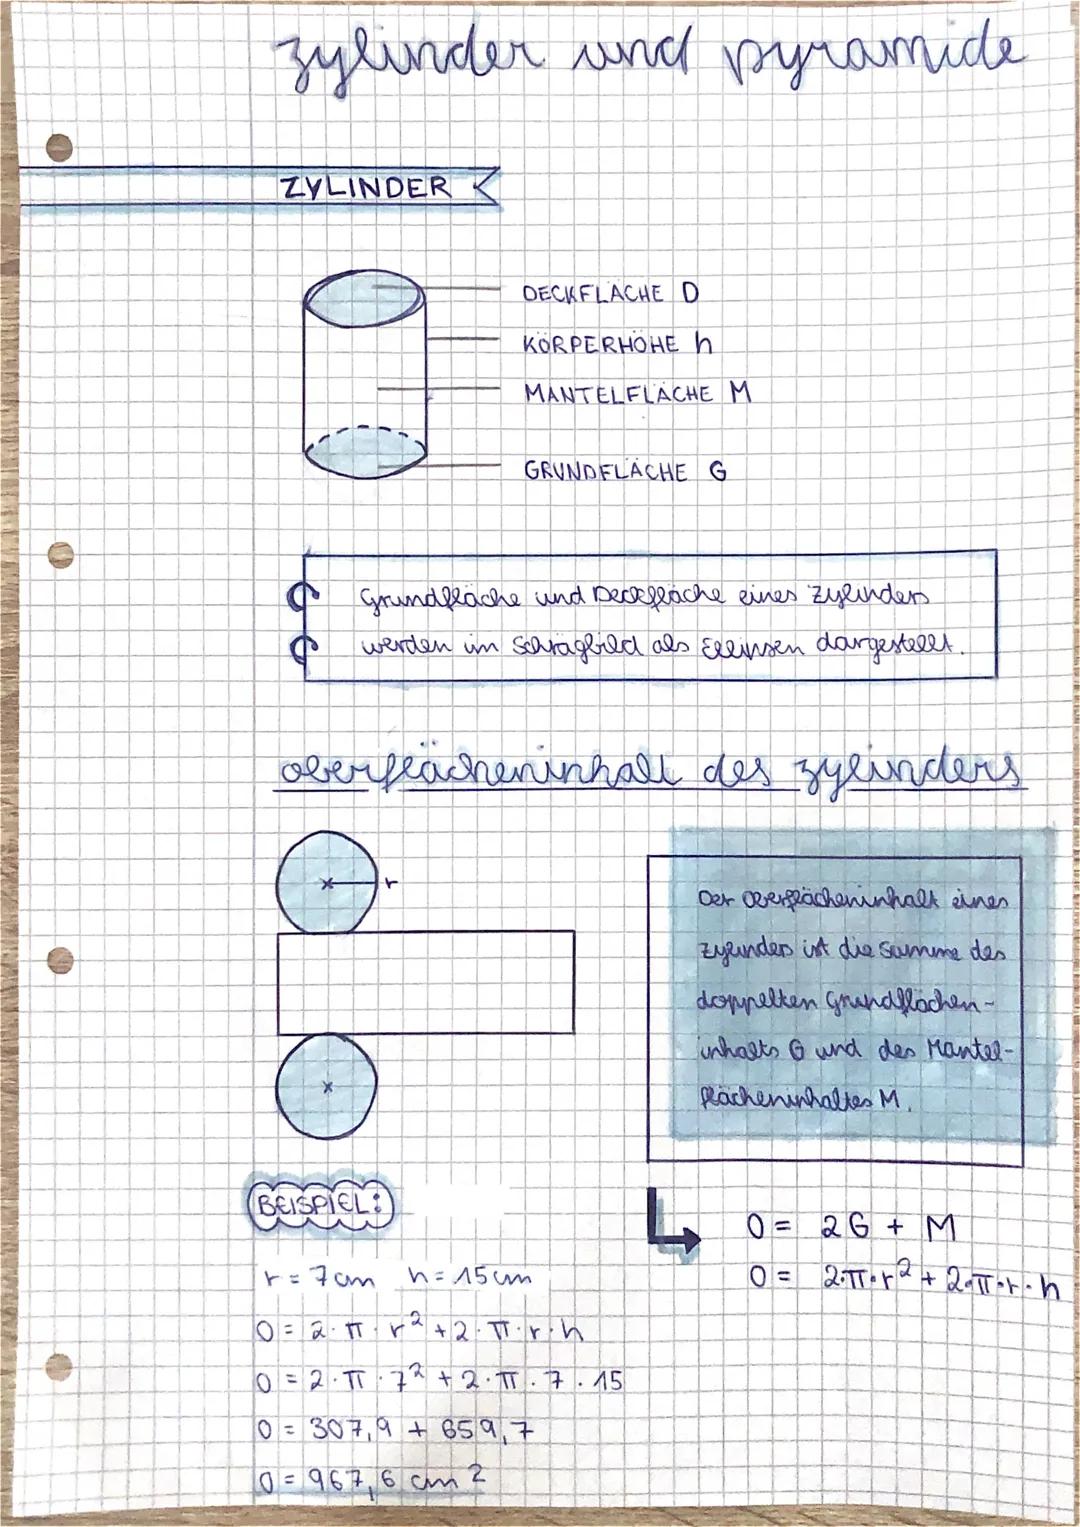 zylinder und pyramide
ZYLINDER
DECKFLÄCHE D
KÖRPERHÖHE h
MANTELFLÄCHE M
GRUNDFLÄCHE G
Grundfläche und Deckfläche eines Zylinders
werden im Schrägbild als Ellipsen dargestellt.
oberflächeninhalt des zylinders
r
Der Oberflächeninhalt eines
Zylinders ist die Summe des
doppelten Grundflächen-
inhalts G und des Mantel-
flächeninhaltes M.
BEISPIEL:
O = 2G + M
O = 2·π·r² + 2·π·r·h
r = 7cm h = 15cm
O = 2·π·r² + 2·π·r·h
O = 2·π·7² + 2·π·7·15
O = 307,9 + 659,7
O = 967,6 cm²